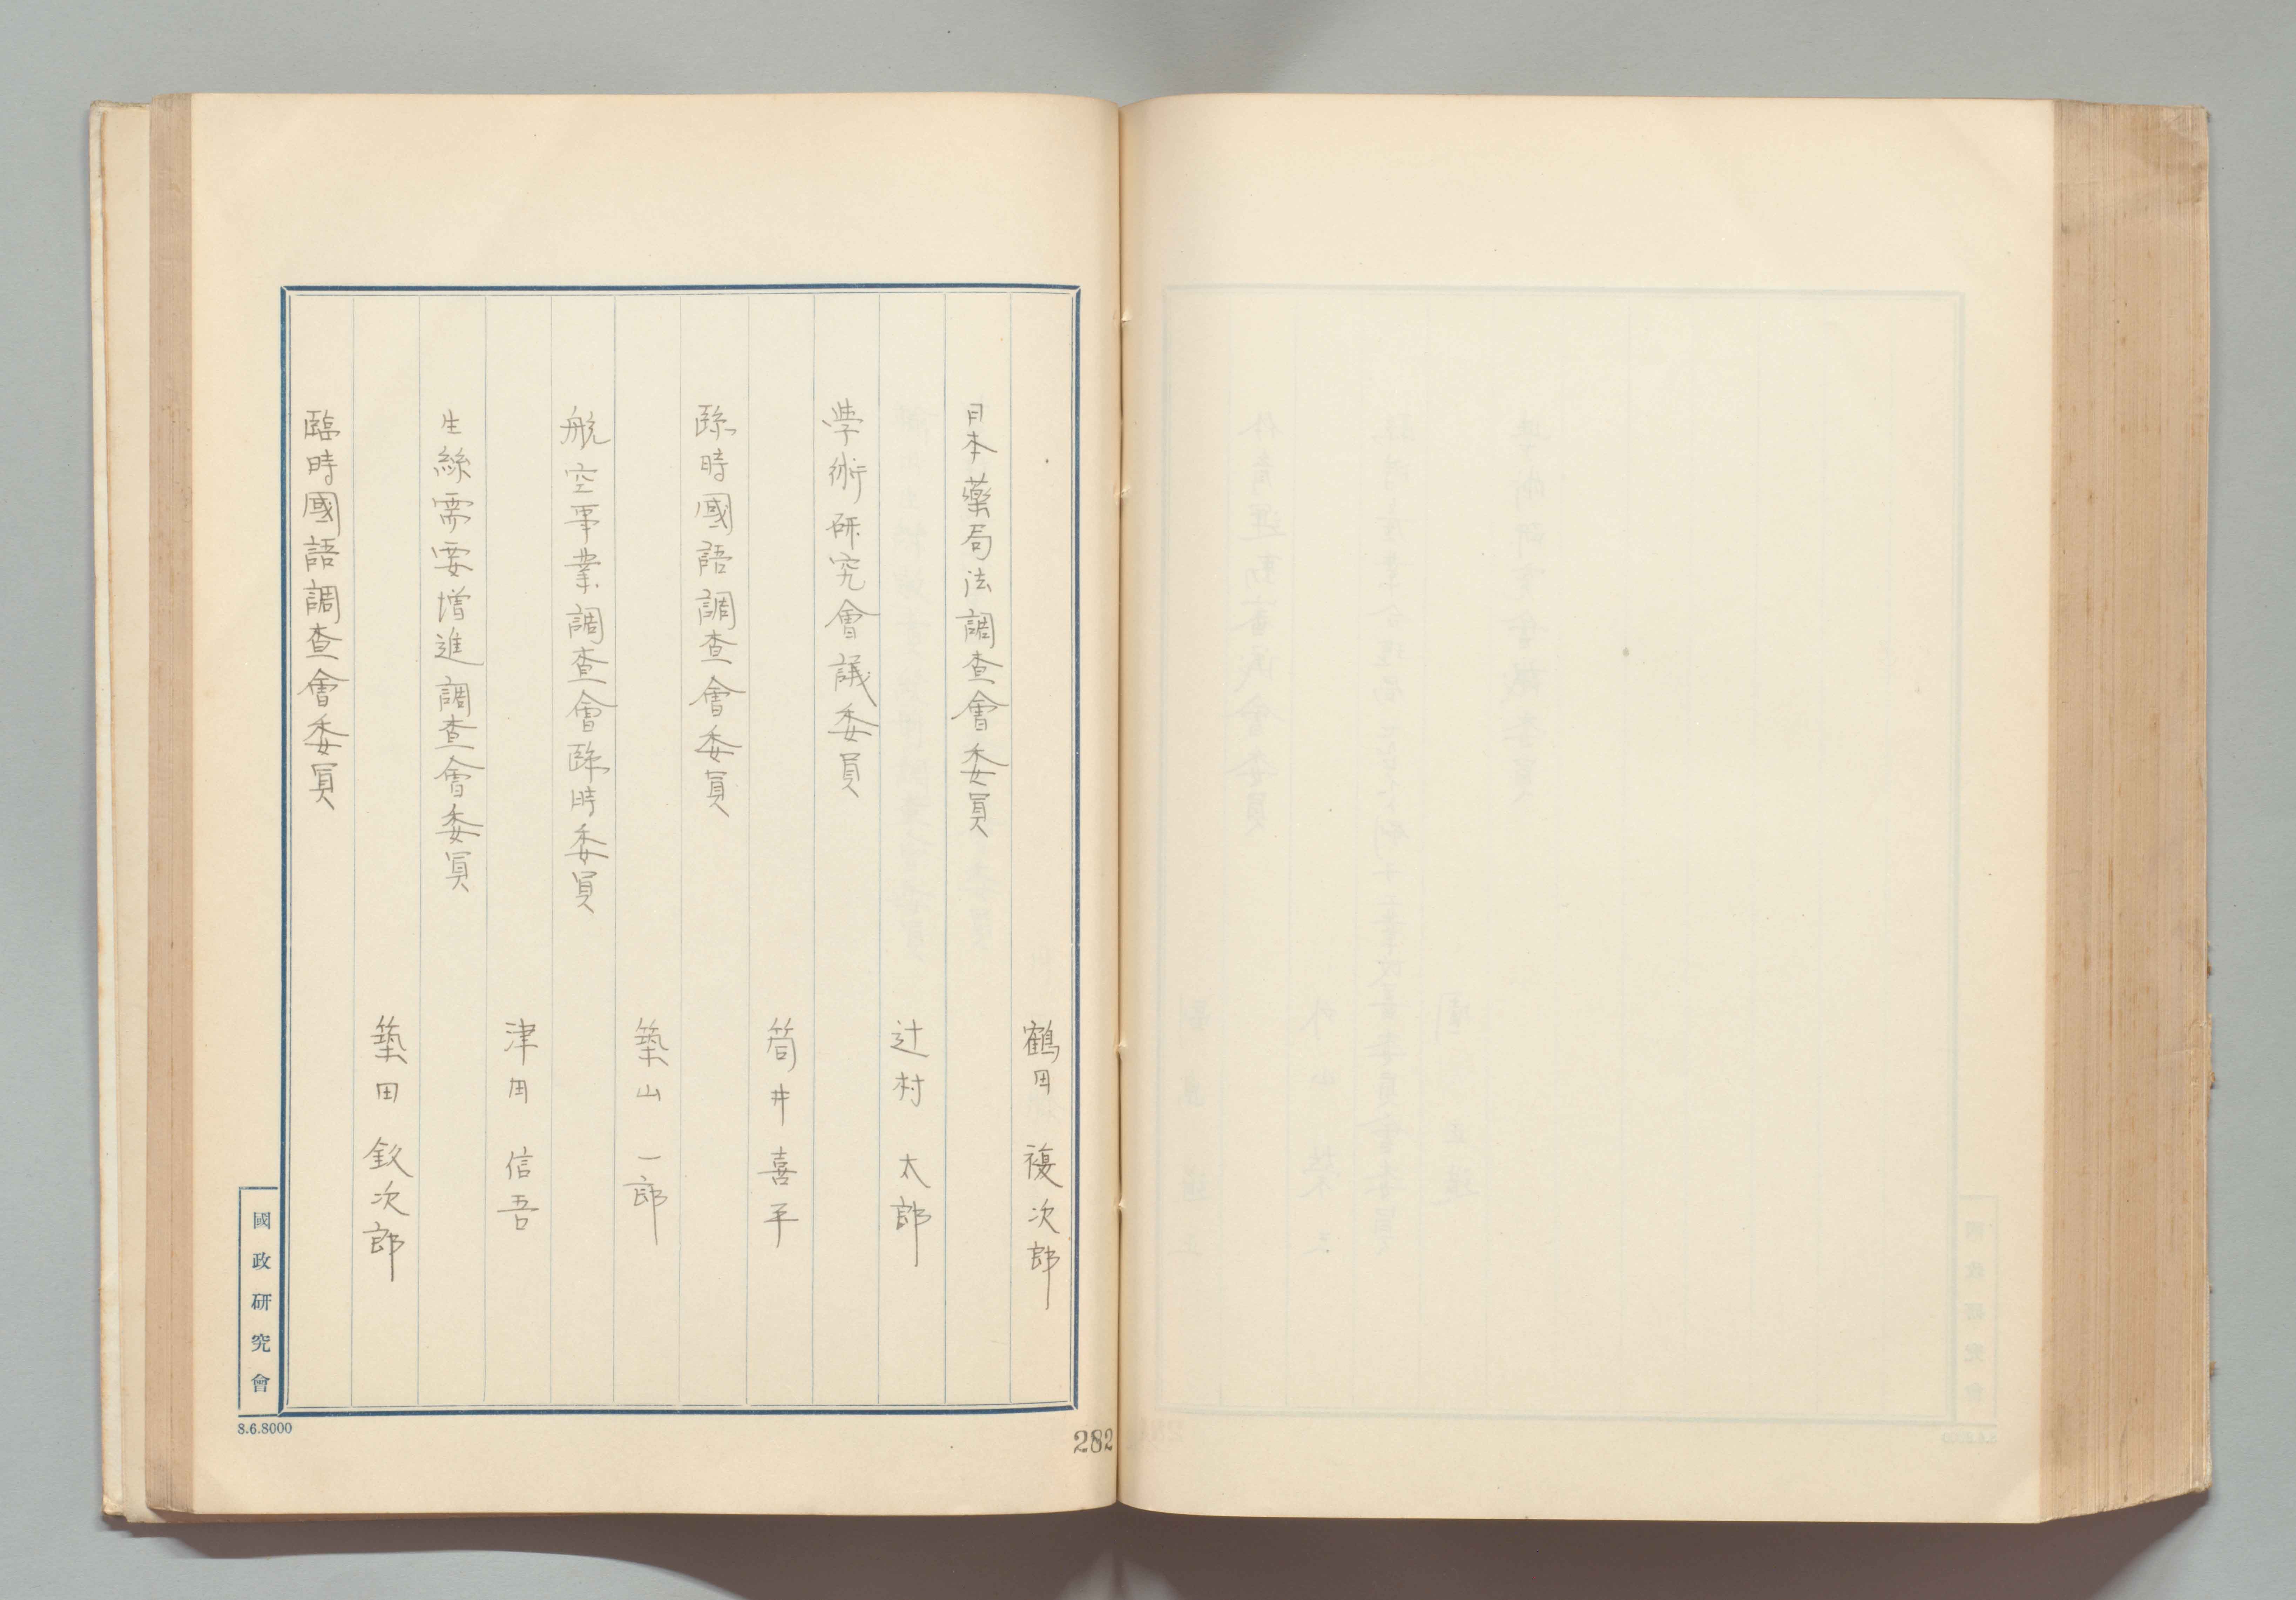 鶴田 複次郎
日本藥局法調査會委員
辻村 太郎
學術研究會議委員
筒井 喜平
臨時國語調査會委員
築山 一郎
航空事業調査會臨時委員
津田 信吾
生絲需要増進調査會委員
築田 釞次郎
臨時國語調査會委員
國政研究會
8.6.8000
282